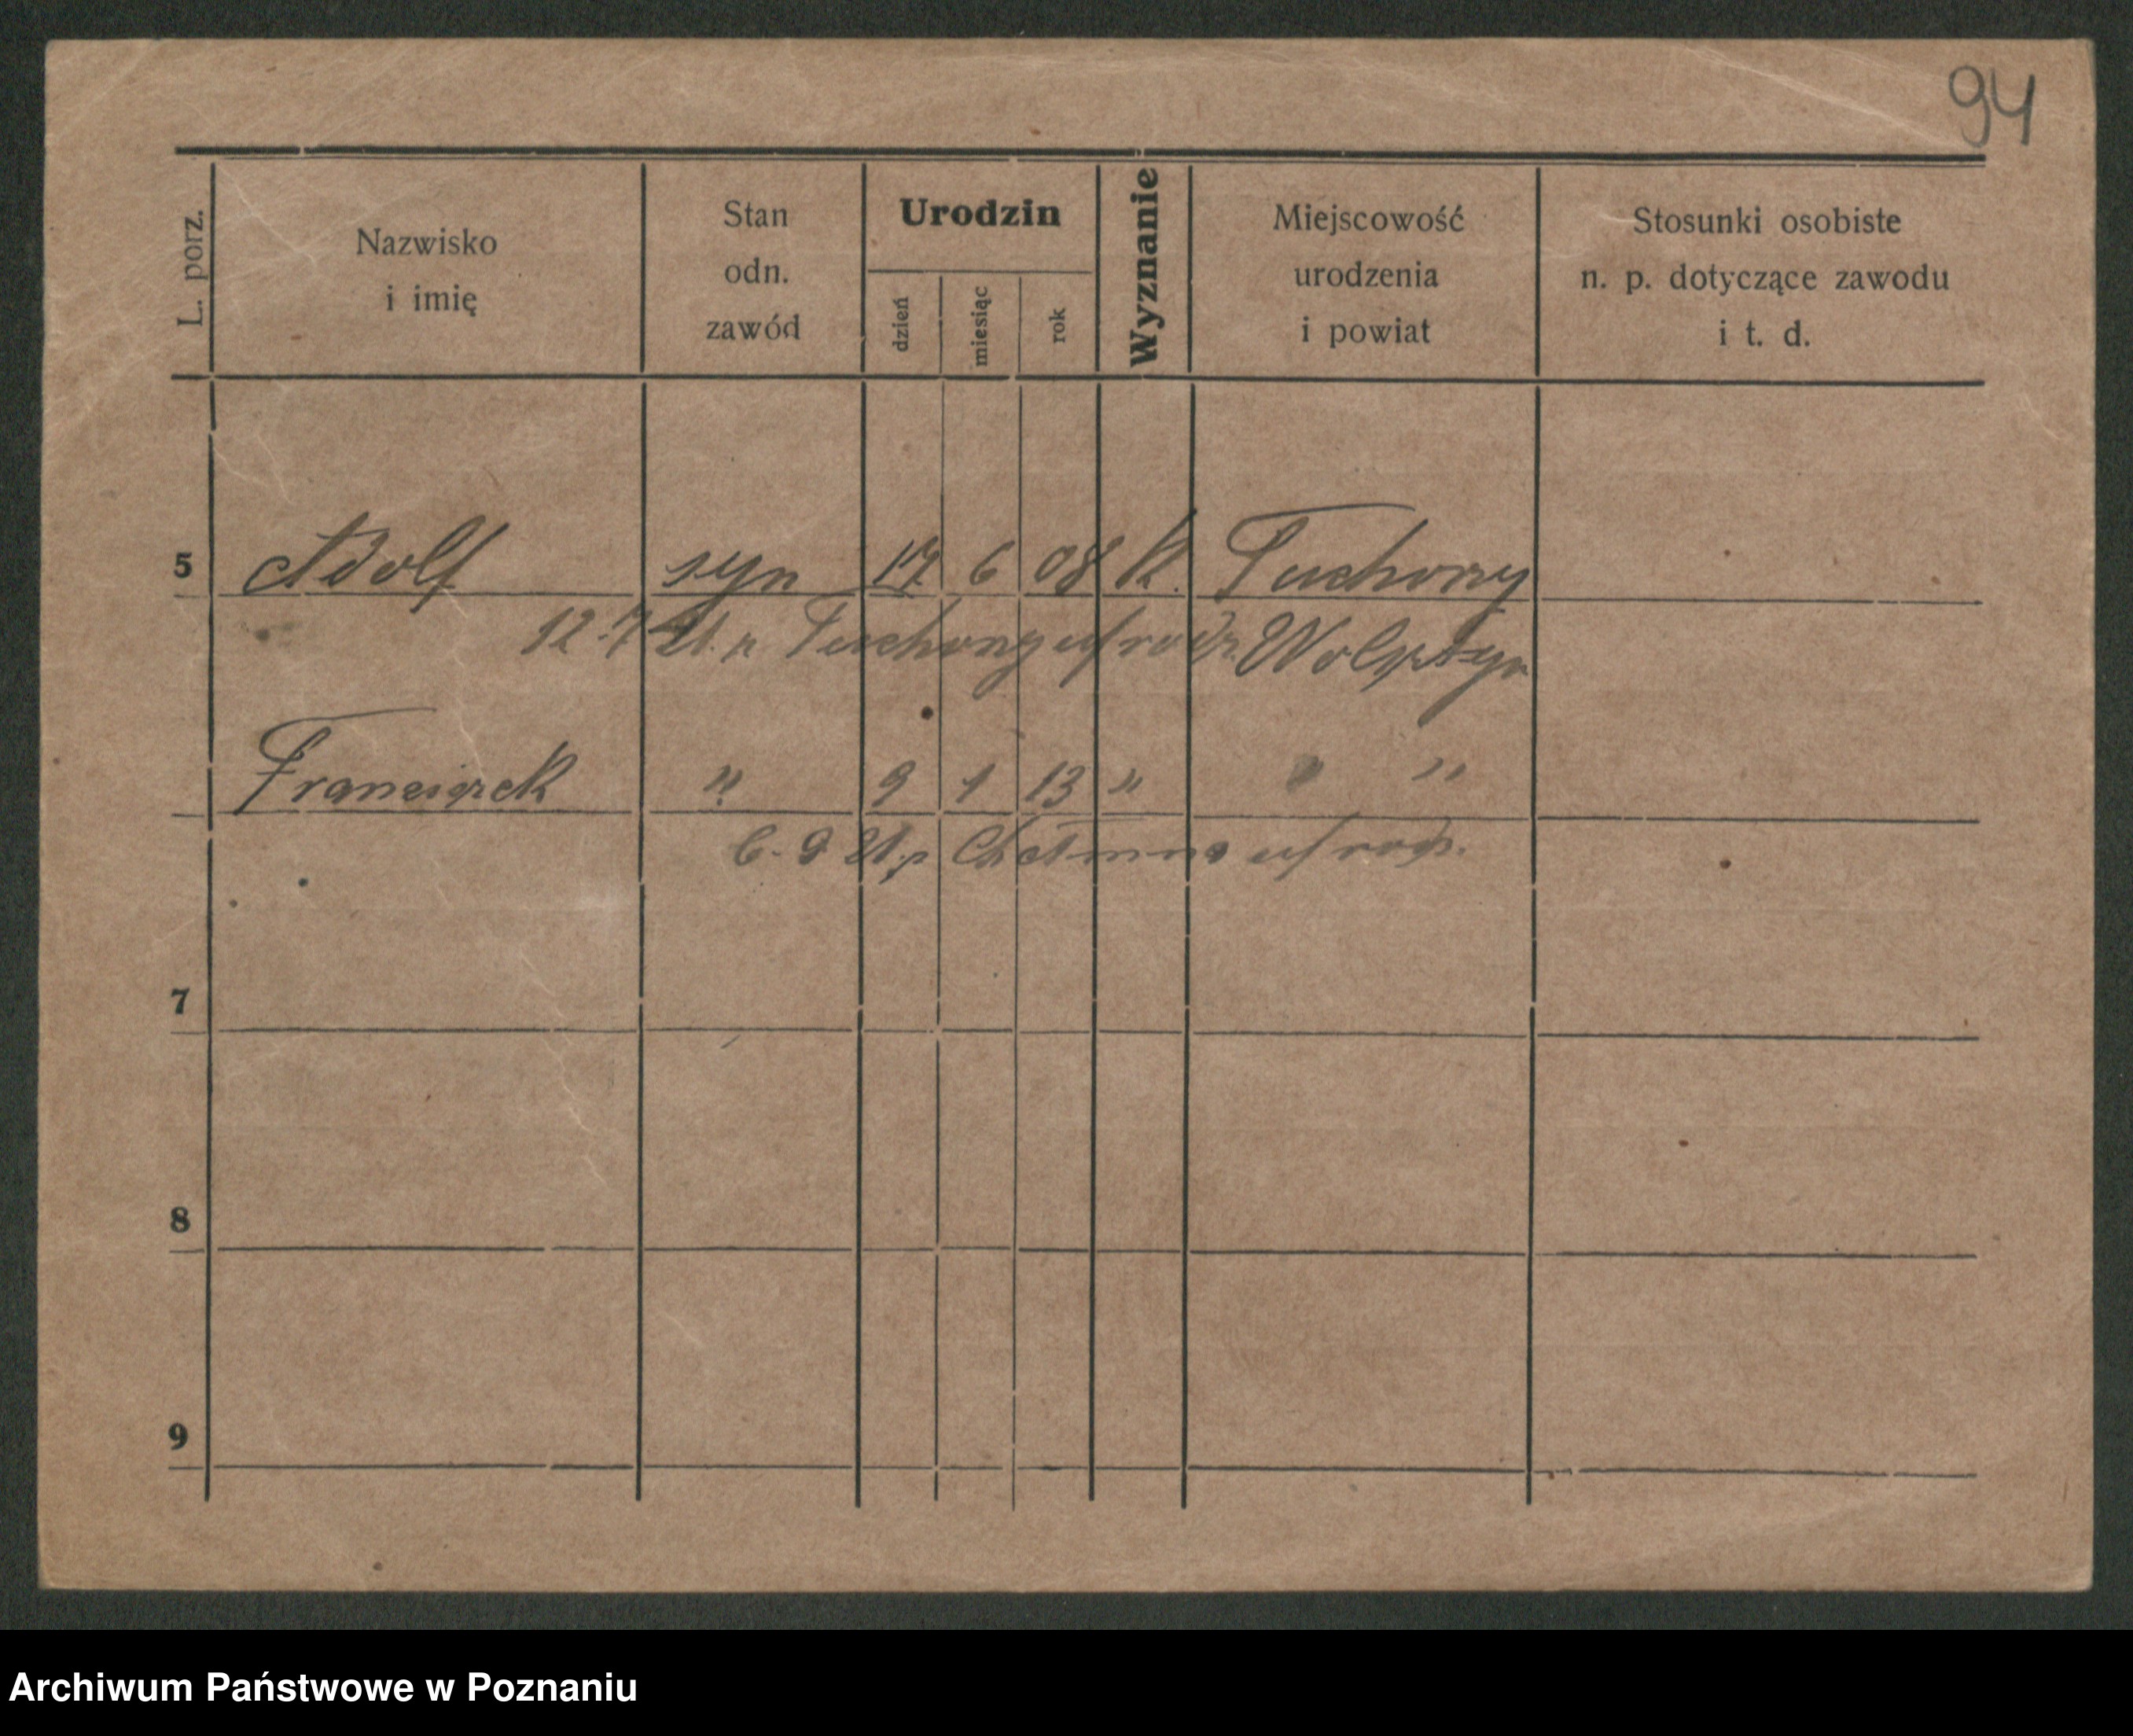 94
L. porz.
Nazwisko
i imię
Stan
odn.
zawód
Urodzin
dzień
miesiąc
rok
Wyznanie
Miejscowość
urodzenia
i powiat
Stosunki osobiste
n. p. dotyczące zawodu
i t. d.
5 Adolf syn 17 6 08 K. Tuchorzy
12.7 21. z Tuchorzy Wolsztyn
Franciszek " 9 1 13 " " "
6. 9 21. z Chełmna
7
8
9
Archiwum Państwowe w Poznaniu